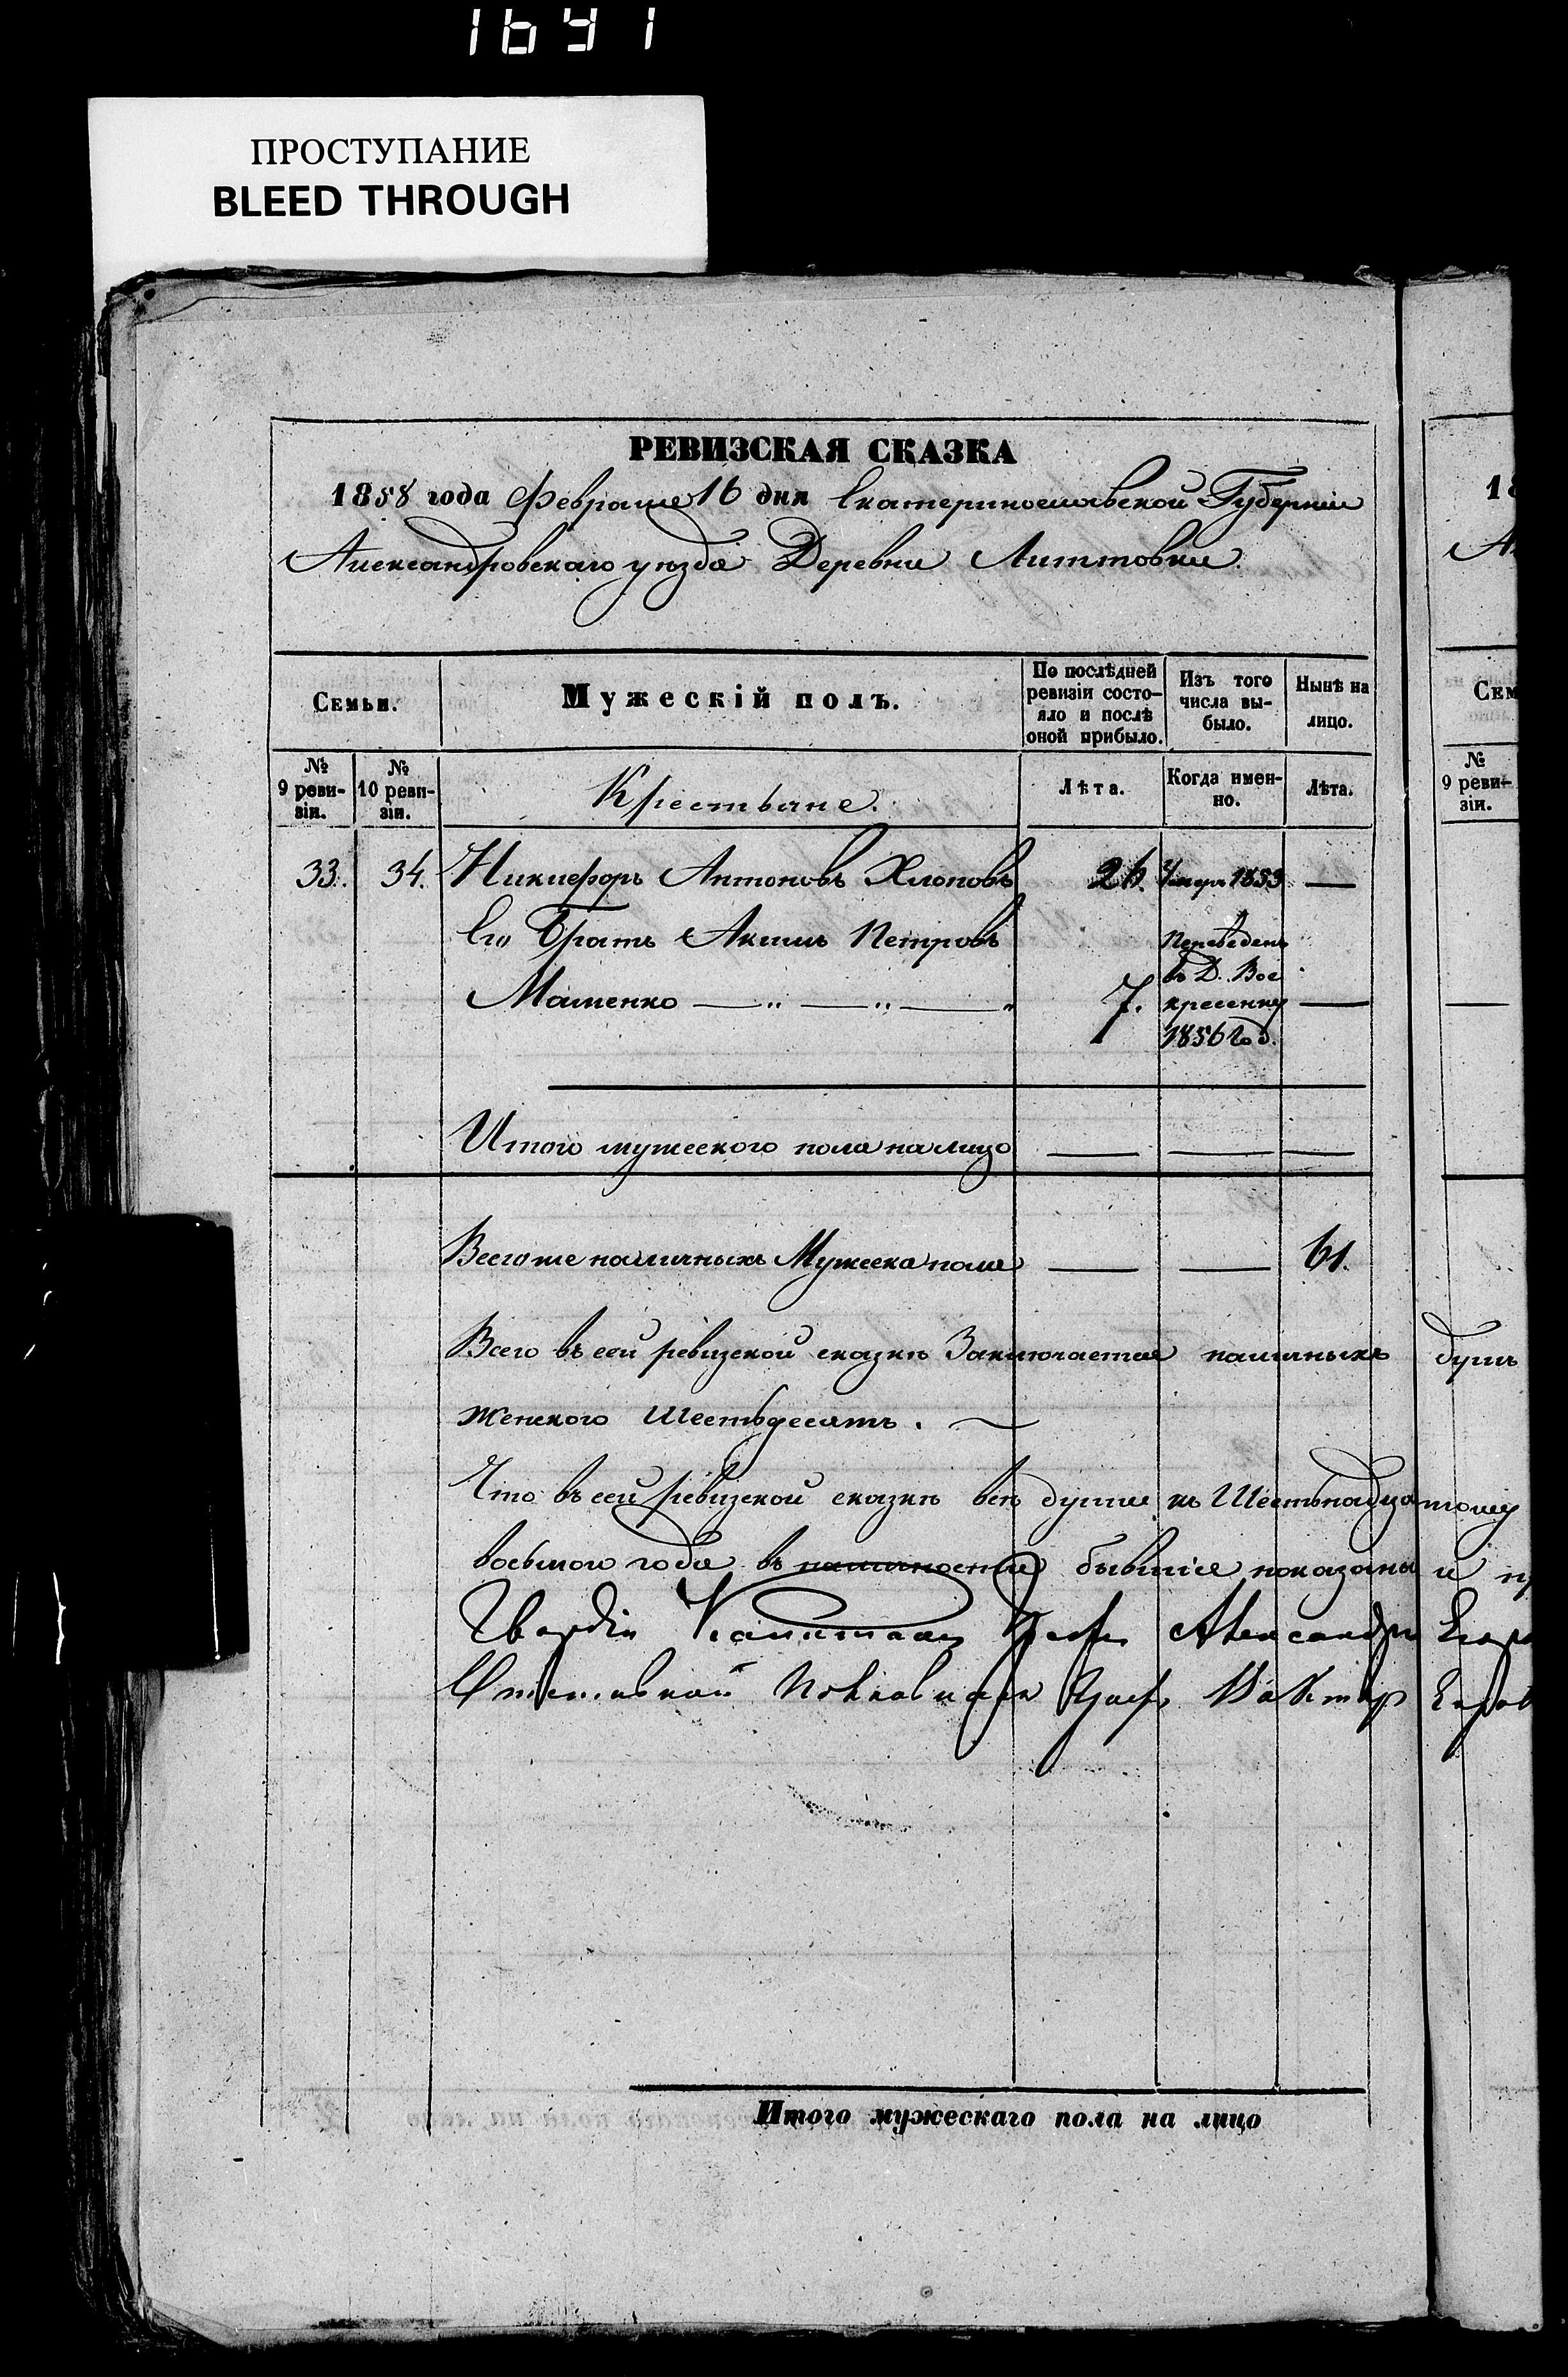 1641
ПРОСТУПАНИЕ
BLEED THROUGH
РЕВИЗСКАЯ СКАЗКА
1858 года Февраля 16 дня Екатеринославской Губернии
Александровскаго уѣзда Деревни Литтовки
Семьи.
Мужескій полъ.
По послѣдней ревизіи состояло и послѣ оной прибыло.
Изъ того числа выбыло.
Нынѣ на лицо.
№ 9 ревизіи.
№ 10 ревизіи.
Крестьяне.
Лѣта.
Когда именно.
Лѣта.
33. 34. Никифоръ Антоновъ Хлоповъ 26. Умеръ 1853 —
Его Братъ Акимъ Петровъ Переведенъ
въ Д. Вос
Машенко — „ — „ — „ 7. кресенку —
1856 год.
Итого мужескаго пола на лицо — — —
Всего же наличныхъ Мужеска пола — — 61.
Всего въ сей ревизской сказкѣ Заключается наличныхъ душъ
женскаго Шестьдесятъ.
Что въ сей ревизской сказкѣ всѣ души къ Шестьнадцатому
восьмаго года въ наличности бывшіе показаны и
Гвардіи Капитанъ Графъ Александръ
Полковникъ Графъ Викторъ
Итого мужескаго пола на лицо
18
Сем
№
9 ревизіи.